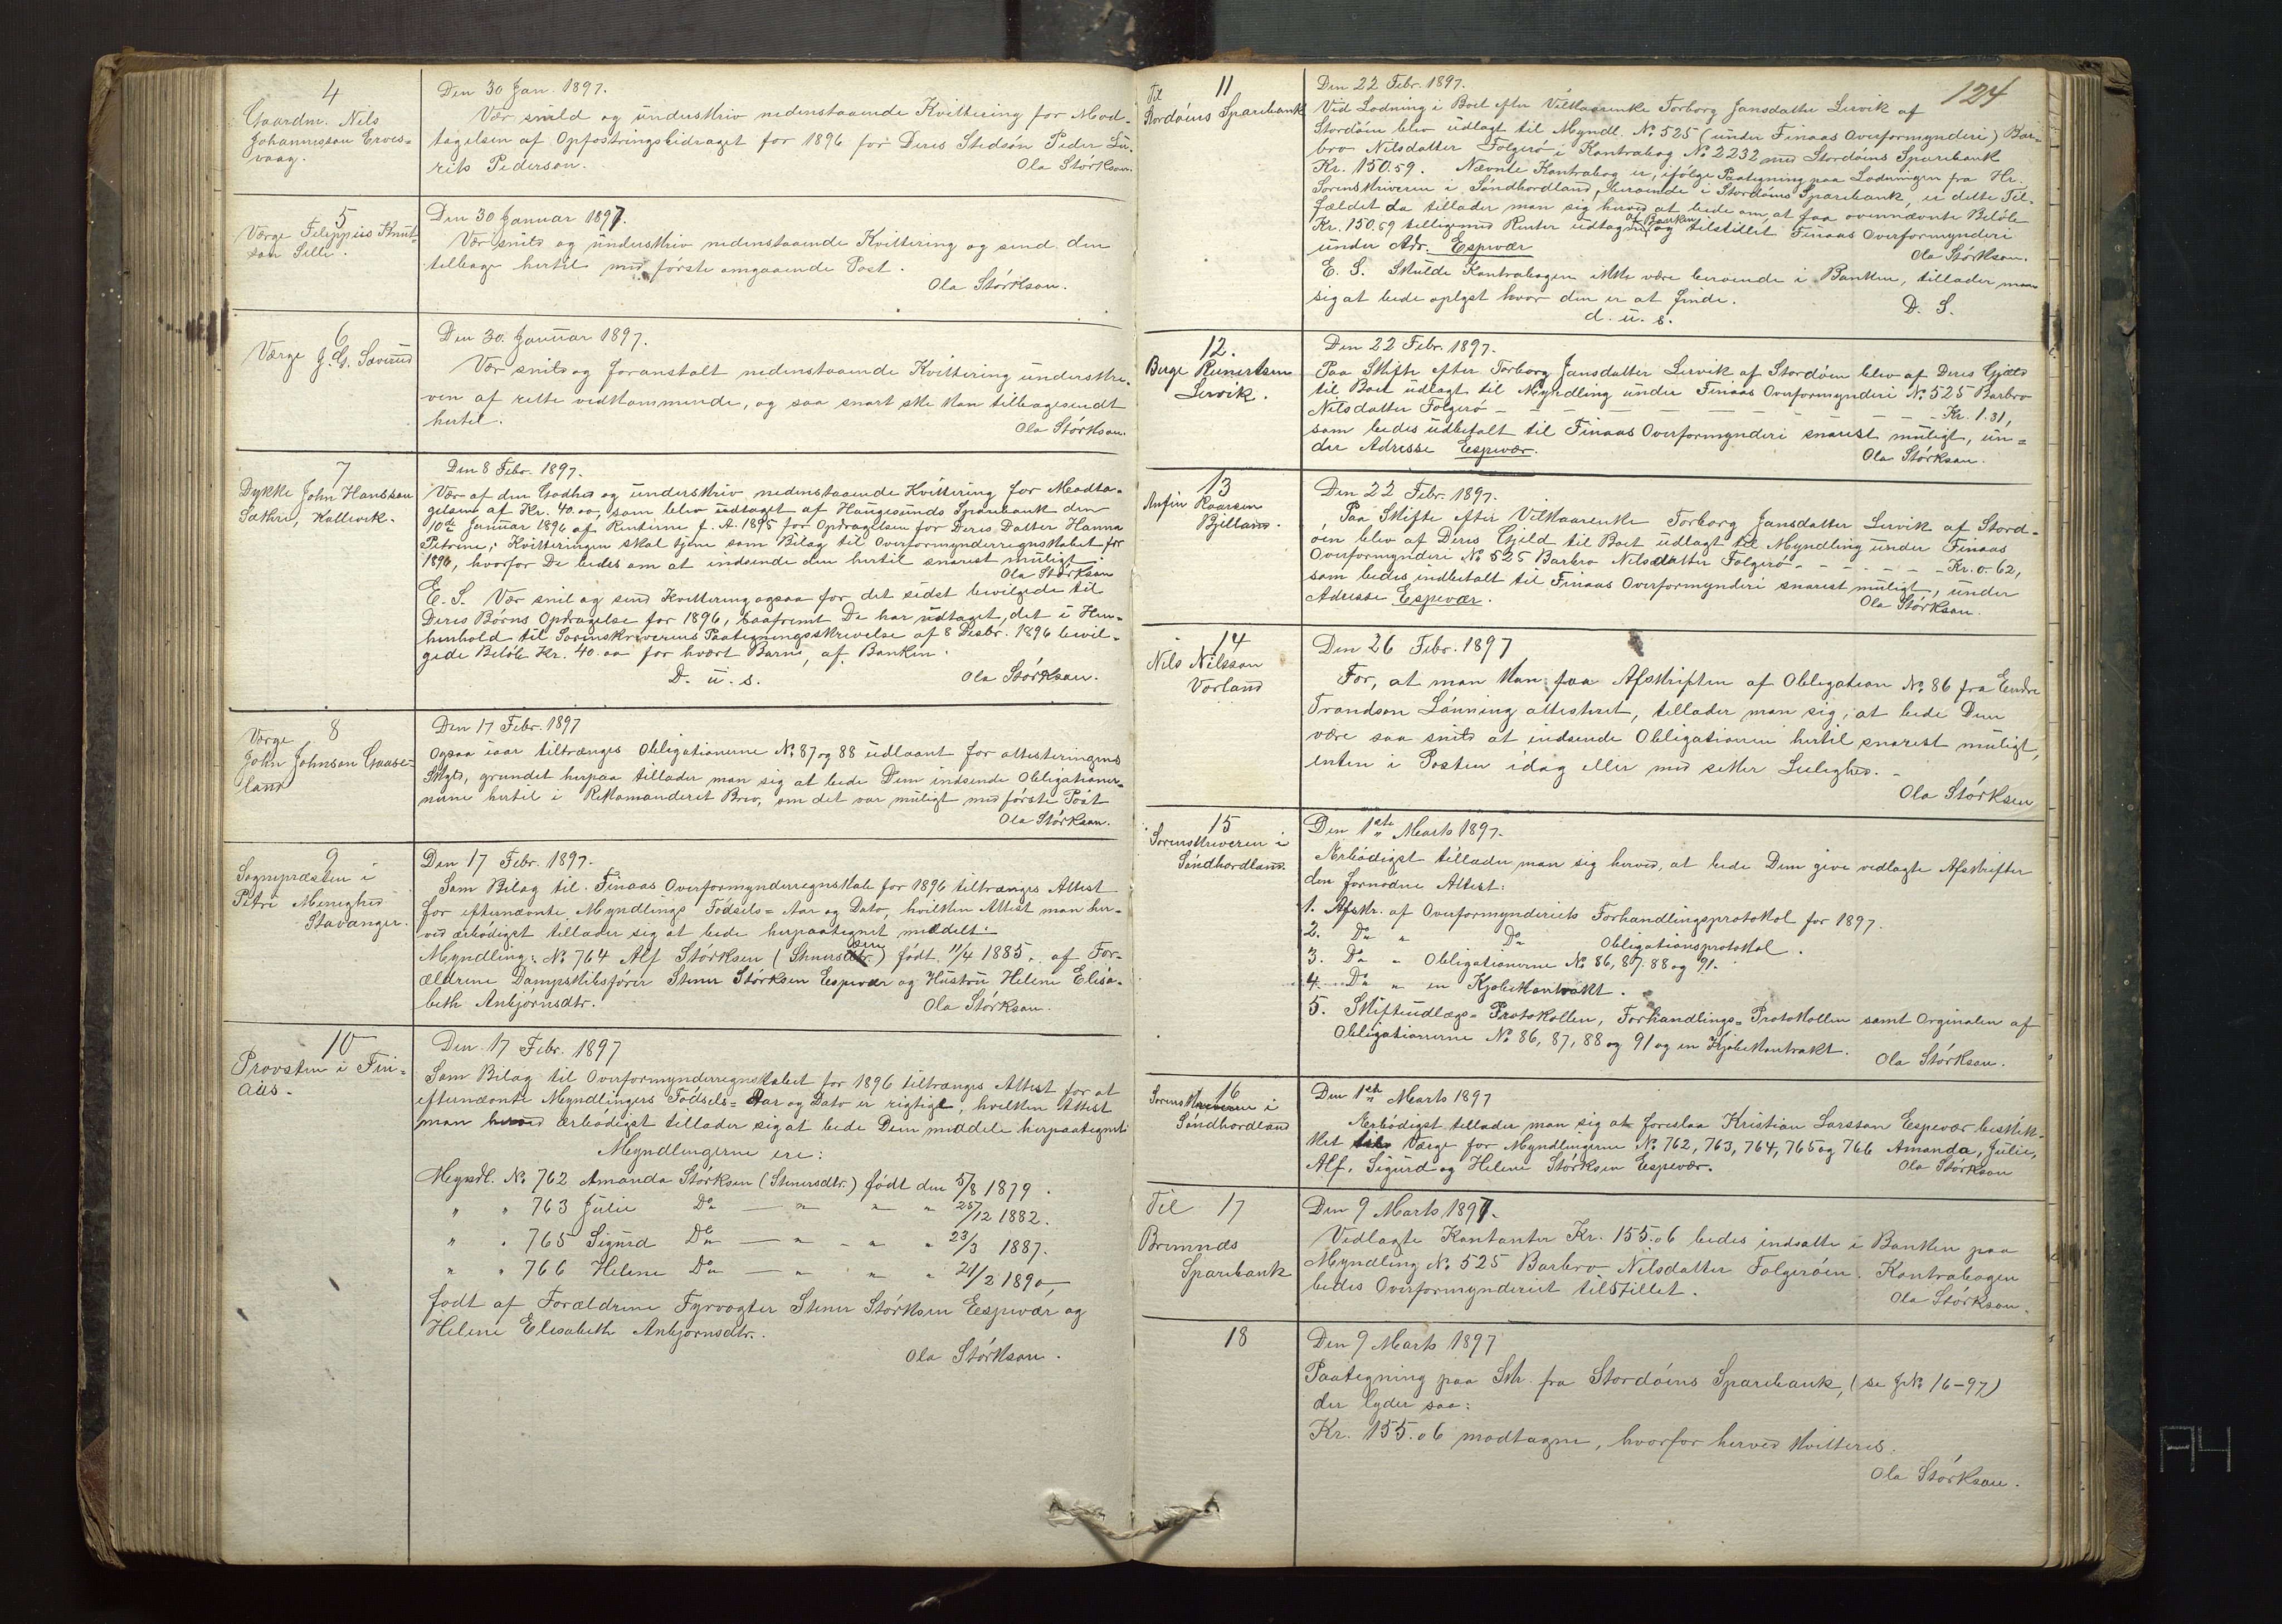 4
Gaardm. Nils
Johannesson Erves-
vaag.
Den 30 Jan. 1897.
Vær snild og underskriv nedenstaaende Kvittering for Mod-
tagelsen af Opfostringsbidraget for 1896 for Deres Stedsøn Peder
riks Pederson.
Ola Størkson.
5
Værge Filippus Knut-
son Lille.
Den 30 Januar 1897.
Vær snild og underskriv nedenstaaende Kvittering og send den
tilbage hertil med første omgaaende Post.
Ola Størkson.
6
Værge J. G. Søverud
Den 30. Januar 1897.
Vær snild og foranstalt nedenstaaende Kvittering underskre-
ven af rette vedkommende, og saa snart ske kan tilbagesendt
hertil.
Ola Størkson.
7
Dykke John Hansson
Sæthre, Kallevik.
Den 8 Febr. 1897.
Vær af den Godhed og underskriv nedenstaaende Kvittering for Modta-
gelsen af Kr. 40.00, som blev udtaget af Haugesunds Sparebank den
10de Januar 1896 af Renterne f. A. 1895 for Opdragelsen for Deres Datter Hanna
Petrine; Kvitteringen skal tjene som Bilag til Overformynderregnskabet for
1896, hvorfor De bedes om at indsende den hertil snarest muligt.
Ola Størkson
E. S. Vær snil og send Kvittering ogsaa for det sidst bevilgede til
Deres Børns Opdragelse for 1896, saafremt De har udtaget, det i Hen-
henhold til Sorenskriverens Paategningsskrivelse af 8 Desbr. 1896 bevil-
gede Beløb Kr. 40.00 for hvert Barn, af Banken.
D. u. s.
Ola Størkson.
8
Værge
John Johnson Gaase-
land
Den 17 Febr. 1897
Ogsaa iaar tiltrænges Obligationerne No. 87 og 88 udlaant for attesteringens
Skyld, grundet herpaa tillader man sig at bede Dem indsende Obligationer-
nerne hertil i Rekomanderet Brev, om det var muligt med første Post
Ola Størkson.
9
Sognepræsten i
Petri Menighed
Stavanger.
Den 17 Febr. 1897.
Som Bilag til Finaas Overformynderregnskab for 1896 tiltrænges Attest
for efternævnte Myndlings Fødsels= Aar og Dato, hvilken Attest man her-
ved ærbødigst tillader sig at bede herpaategnet meddelt:
Myndling: No. 764 Alf Størksen (Stenersdtr. sen) født 11/4 1885. af For-
ældrene Dampskibsfører Stener Størksen Espevær og Hustru Helene Elisa-
beth Anbjørnsdtr.
Ola Størkson.
10
Provsten i Fin-
aas.
Den 17 Febr. 1897
Som Bilag til Overformynderregnskabet for 1896 tiltrænges Attest for at
efternævnte Myndlingers Fødsels= Aar og Dato er rigtigt, hvilken Attest
man herved ærbødigst tillader sig at bede Dem meddele herpaategnet
Myndlingerne ere:
Myndl. No. 762 Amanda Størksen (Stenersdtr.) født den 5/8 1879.
" " 763 Julie Do — " " " 25/12 1882.
" " 765 Sigurd Do — " - " " 23/3 1887.
" " 766 Helene Do — " " " 21/2 1890,
født af Forældrene Fyrvogter Stener Størksen Espevær og
Helene Elisabeth Anbjørnsdtr.
Ola Størkson.
124
11
Til
Stordøens Sparebank
Den 22 Febr. 1897.
Ved Lodning i Boet efter Vilkaarenke Torborg Jansdatter Lervik af
Stordøen blev udlagt til Myndl. No. 525 (under Finaas Overformynderi) Bar-
bro Nilsdatter Folgerø i Kontrabog No. 2232 med Stordøens Sparebank
Kr. 150.59. Nævnte Kontrabog er, ifølge Paategning paa Lodningen fra Hr.
Sorenskriveren i Søndhordland, beroende i Stordøens Sparebank, er dette Til-
fældet da tillader man sig herved at bede om, at faa ovennævnte Beløb
Kr. 150.59 tilligemed Renter udtaget af Banken og tilstillet Finaas Overformynderi
under Adr. Espevær
Ola Størkson.
E. S. Skulde Kontrabogen ikke være beroende i Banken, tillader man
sig at bede oplyst hvor den er at finde.
D. S.
d. u. s.
12.
Berge Reinertsen
Lervik.
Den 22 Febr. 1897.
Paa Skifte efter Torborg Jansdatter Lervik af Stordøen blev af Deres Gjæld
til Boet udlagt til Myndling under Finaas Overformynderi No. 525 Barbro
Nilsdatter Folgerø - - - - - - - - - - Kr. 1.31,
som bedes udbetalt til Finaas Overformynderi snarest muligt, un=
der Adresse Espevær.
Ola Størkson.
13
Anfin Roarsen
Bjelland.
Den 22 Febr. 1897.
Paa Skifte efter Vilkaarenke Torborg Jansdatter Lervik af Stord-
øen blev af Deres Gjeld til Boet udlagt til Myndling under Finaas
Overformynderi No. 525 Barbro Nilsdatter Folgerø - - - - - - Kr. 0.62,
som bedes indbetalt til Finaas Overformynderi snarest muligt, under
Adresse Espevær.
Ola Størkson.
14
Nils Nilsson
Vorland
Den 26 Febr. 1897
For, at man kan faa Afskriften af Obligation No. 86 fra Endre
Trondson Lønning attesteret, tillader man sig, at bede Dem
være saa snild at indsende Obligationen hertil snarest muligt,
enten i Posten idag eller med sikker Leilighed.
Ola Størksen
15
Sorenskriveren i
Søndhordland.
Den 1ste Marts 1897.
Ærbødigst tillader man sig herved, at bede Dem give vedlagte Afskrifter
den fornødne Attest:
1. Afskr. af Overformynderiets Forhandlingsprotokol for 1897.
2. Do " Do Obligationsprotokol.
3. Do " Obligationerne No. 86, 87. 88 og 91.
4. Do " en Kjøbekontrakt.
5. Skifteudlægs= Protokollen, Forhandlings= Protokollen samt Orginalen af
Obligationerne No. 86, 87, 88 og 91 og en Kjøbekontrakt.
Ola Størkson.
16
Sorenskriveren i
Søndhordland
Den 1ste Marts 1897
Ærbødigst tillader man sig at foreslaa Kristian Larsson Espevær beskik-
ket til Værge for Myndlingerne No. 762, 763, 764, 765 og 766 Amanda, Julie,
Alf, Sigurd og Helene Størksen Espevær.
Ola Størkson
Til 17
Bremnes
Sparebank
Den 9 Marts 1897.
Vedlagte Kontanter Kr. 155.06 bedes indsatte i Banken paa
Myndling No. 525 Barbro Nilsdatter Folgerøen. Kontrabogen
bedes Overformynderiet tilstillet.
Ola Størkson.
18
Den 9 Marts 1897
Paategning paa Skr. fra Stordøens Sparebank, (se J.No. 16-97)
der lyder saa:
Kr. 155.06 modtagne, hvorfor herved kvitteres.
Ola Størkson.